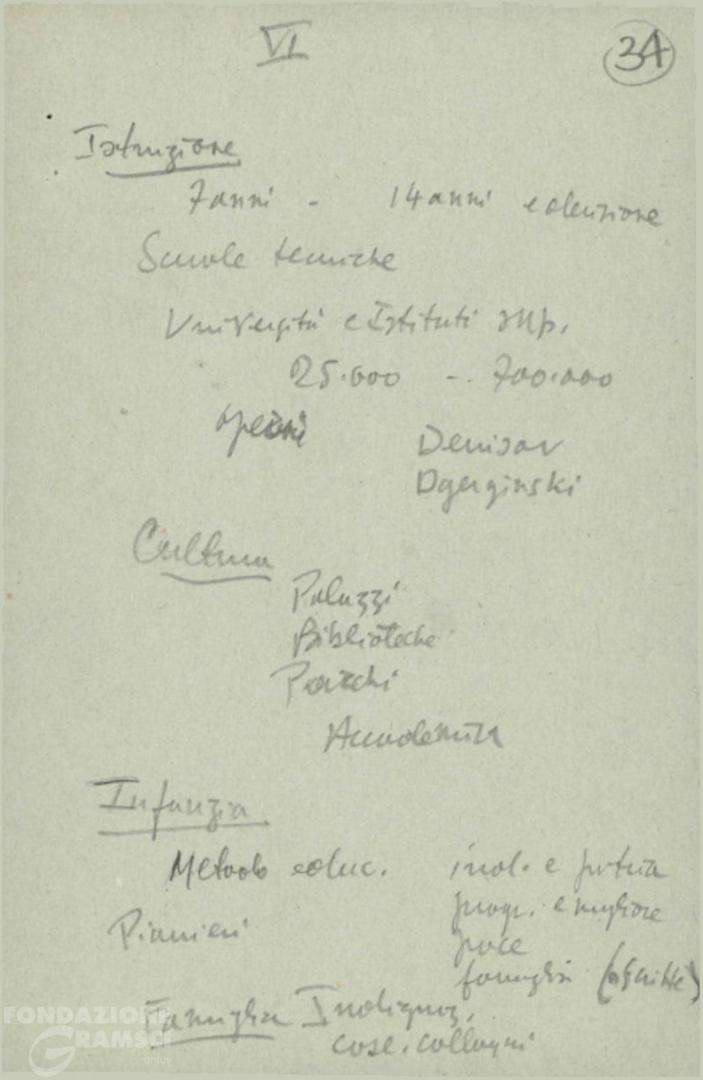 VI
34
Istruzione
7 anni - 14 anni educazione
Scuole tecniche
Università e Istituti sup.
25.000 - 700.000
operai
Denisov
Dzerginski
Cultura
Palazzi
Biblioteche
Parchi
Accademia
Infanzia
Metodo educ. ind. e patria
Pionieri progr. e migliore
pace
famiglia
Famiglia
case.
FONDAZIONE
GRAMSCI
onlus